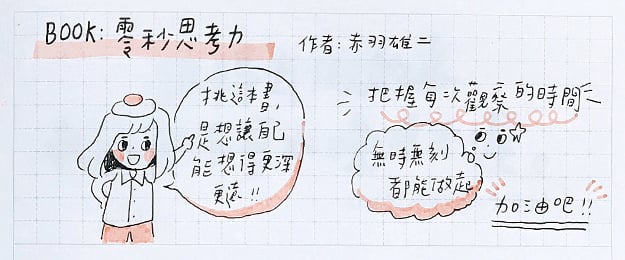 BOOK: 零秒思考力
作者: 赤羽雄二
挑這本書,
是想讓自己
能想得更深
更遠!!
把握每次觀察的時間
無時無刻
都能做起
加油吧!!